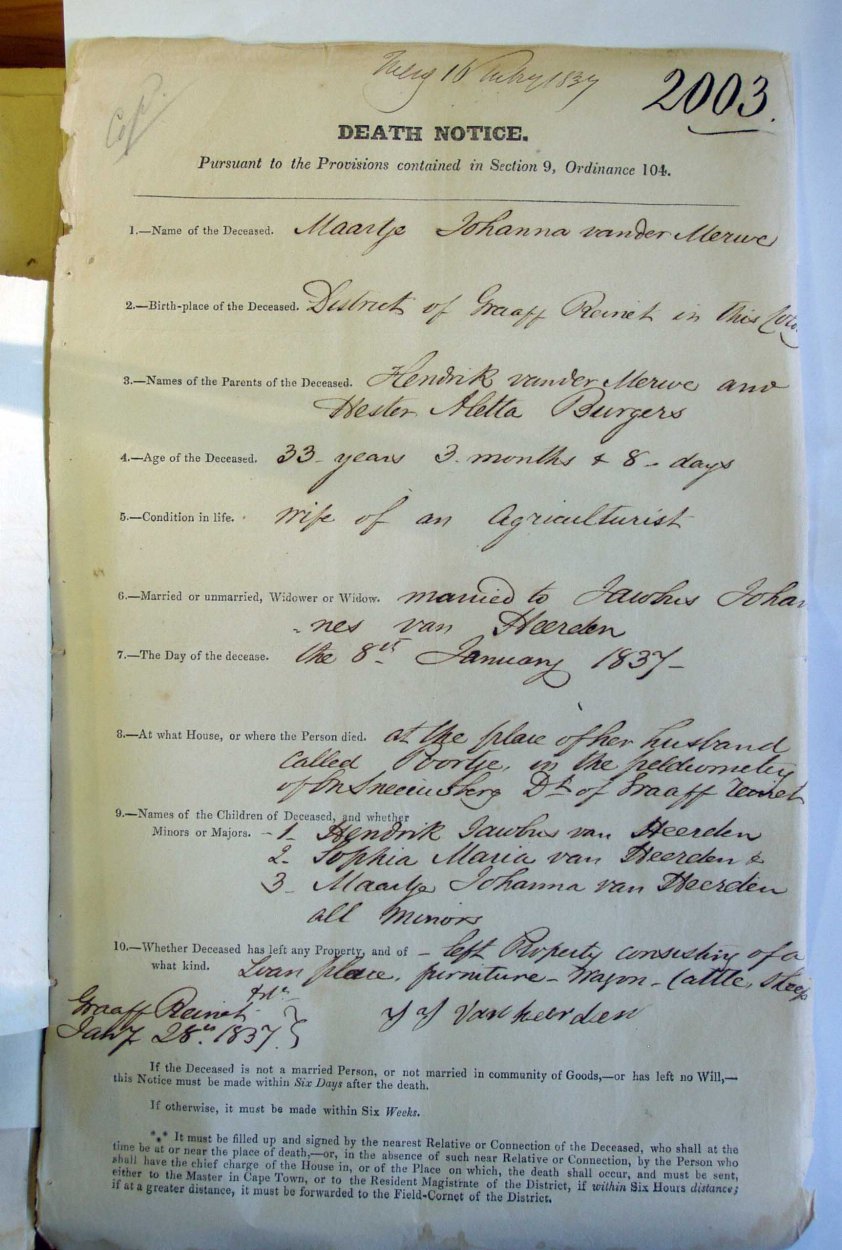 16 1837
2003.
Cop.
DEATH NOTICE.
Pursuant to the Provisions contained in Section 9, Ordinance 104.
1.—Name of the Deceased. Maartje Johanna vander Merwe
2.—Birth-place of the Deceased. District of Graaff Reinet in this Colo
3.—Names of the Parents of the Deceased. Hendrik vander Merwe and
Hester Aletta Burgers
4.—Age of the Deceased. 33 - years 3 - months & 8 - days
5.—Condition in life. wife of an Agriculturist
6.—Married or unmarried, Widower or Widow. married to Jacobus Johan
-nes van Heerden
7.—The Day of the decease. the 8th January 1837 -
8.—At what House, or where the Person died. at the place of her husband
called Poortje, in the feldcornetcy
of Sneeuwberg Dt. of Graaff Reinet
9.—Names of the Children of Deceased, and whether
Minors or Majors. - 1 - Hendrik Jacobus van Heerden
2 - Sophia Maria van Heerden &
3 - Maartje Johanna van Heerden
all Minors
10.—Whether Deceased has left any Property, and of - left Property consisting of a
what kind. Loan place, furniture - Wagon - Cattle, Sheep
Graaff Reinet
Jany 28th 1837. J J Van heerden
If the Deceased is not a married Person, or not married in community of Goods,—or has left no Will,—
this Notice must be made within Six Days after the death.
If otherwise, it must be made within Six Weeks.
*** It must be filled up and signed by the nearest Relative or Connection of the Deceased, who shall at the
time be at or near the place of death,—or, in the absence of such near Relative or Connection, by the Person who
shall have the chief charge of the House in, or of the Place on which, the death shall occur, and must be sent,
either to the Master in Cape Town, or to the Resident Magistrate of the District, if within Six Hours distance;
if at a greater distance, it must be forwarded to the Field-Cornet of the District.